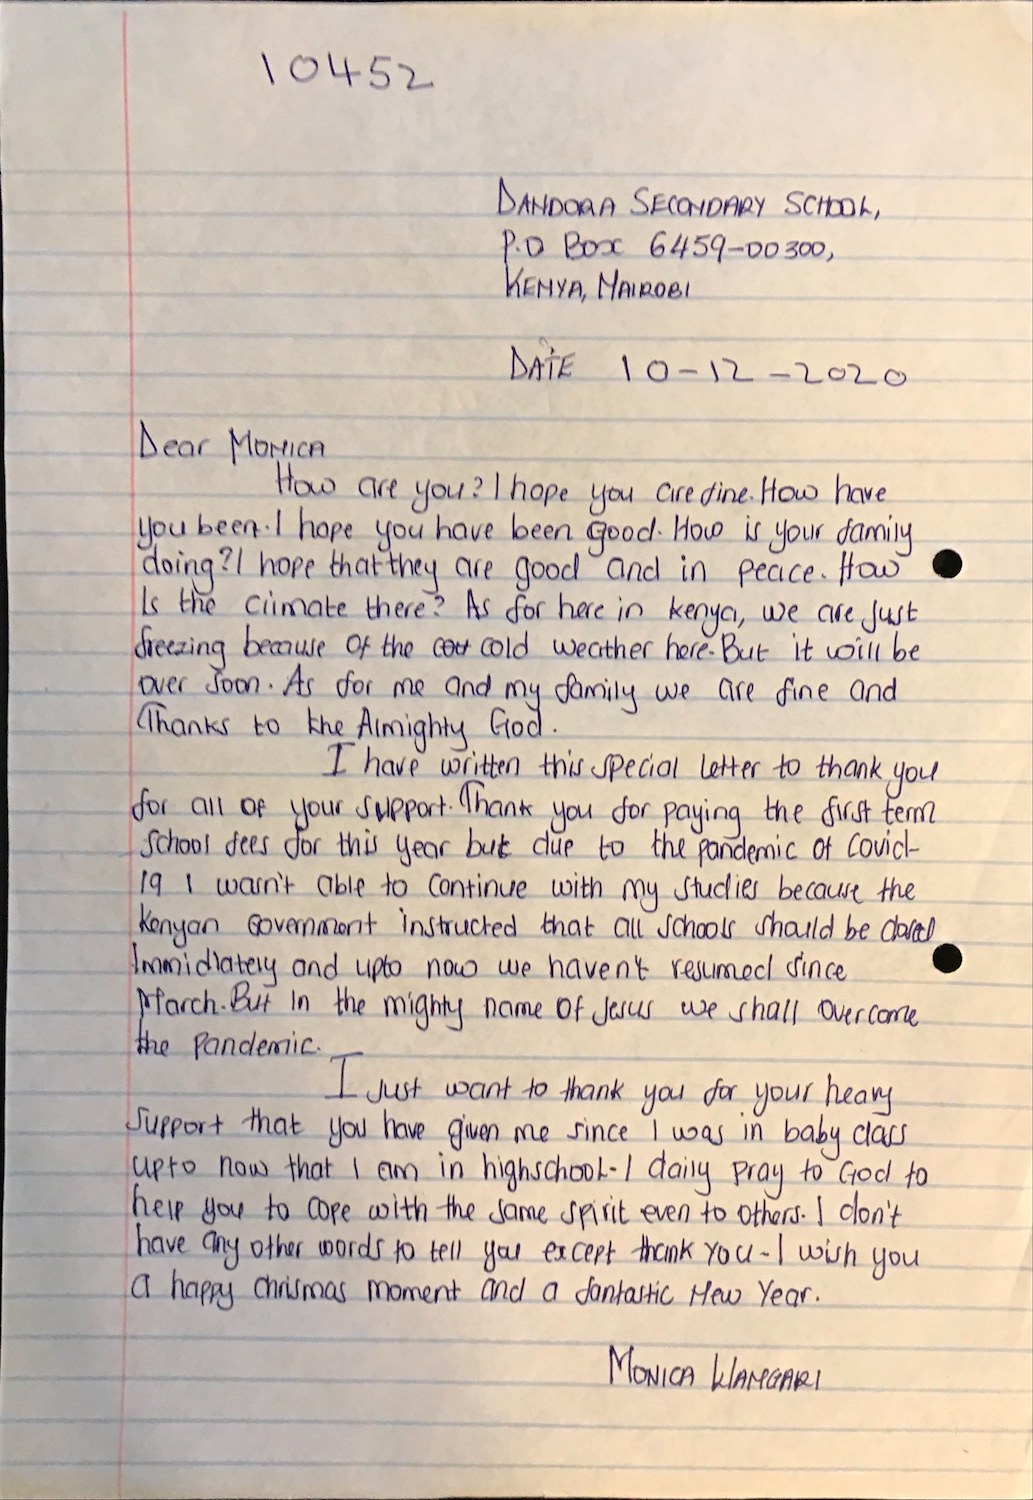 10452
DANDORA SECONDARY SCHOOL,
P.O BOX 6459-00300,
KENYA, NAIROBI
DATE 10-12-2020
Dear MONICA
How are you? I hope you are fine. How have
you been. I hope you have been good. How is your family
doing? I hope that they are good and in peace. How
Is the climate there? As for here in kenya, we are just
freezing because of the cold weather here. But it will be
over soon. As for me and my family we are fine and
Thanks to the Almighty God.
I have written this special letter to thank you
for all of your support. Thank you for paying the first term
school fees for this year but due to the pandemic of Covid-
19 I wasn't able to continue with my studies because the
Kenyan Government instructed that all schools should be closed
Immidiately and upto now we haven't resumed since
March. But In the mighty name of Jesus we shall overcome
the pandemic.
I Just want to thank you for your heavy
support that you have given me since I was in baby class
upto now that I am in highschool. I daily pray to God to
help you to cope with the same spirit even to others. I don't
have any other words to tell you except thank you - I wish you
a happy chrismas moment and a fantastic New Year.
MONICA WANGARI